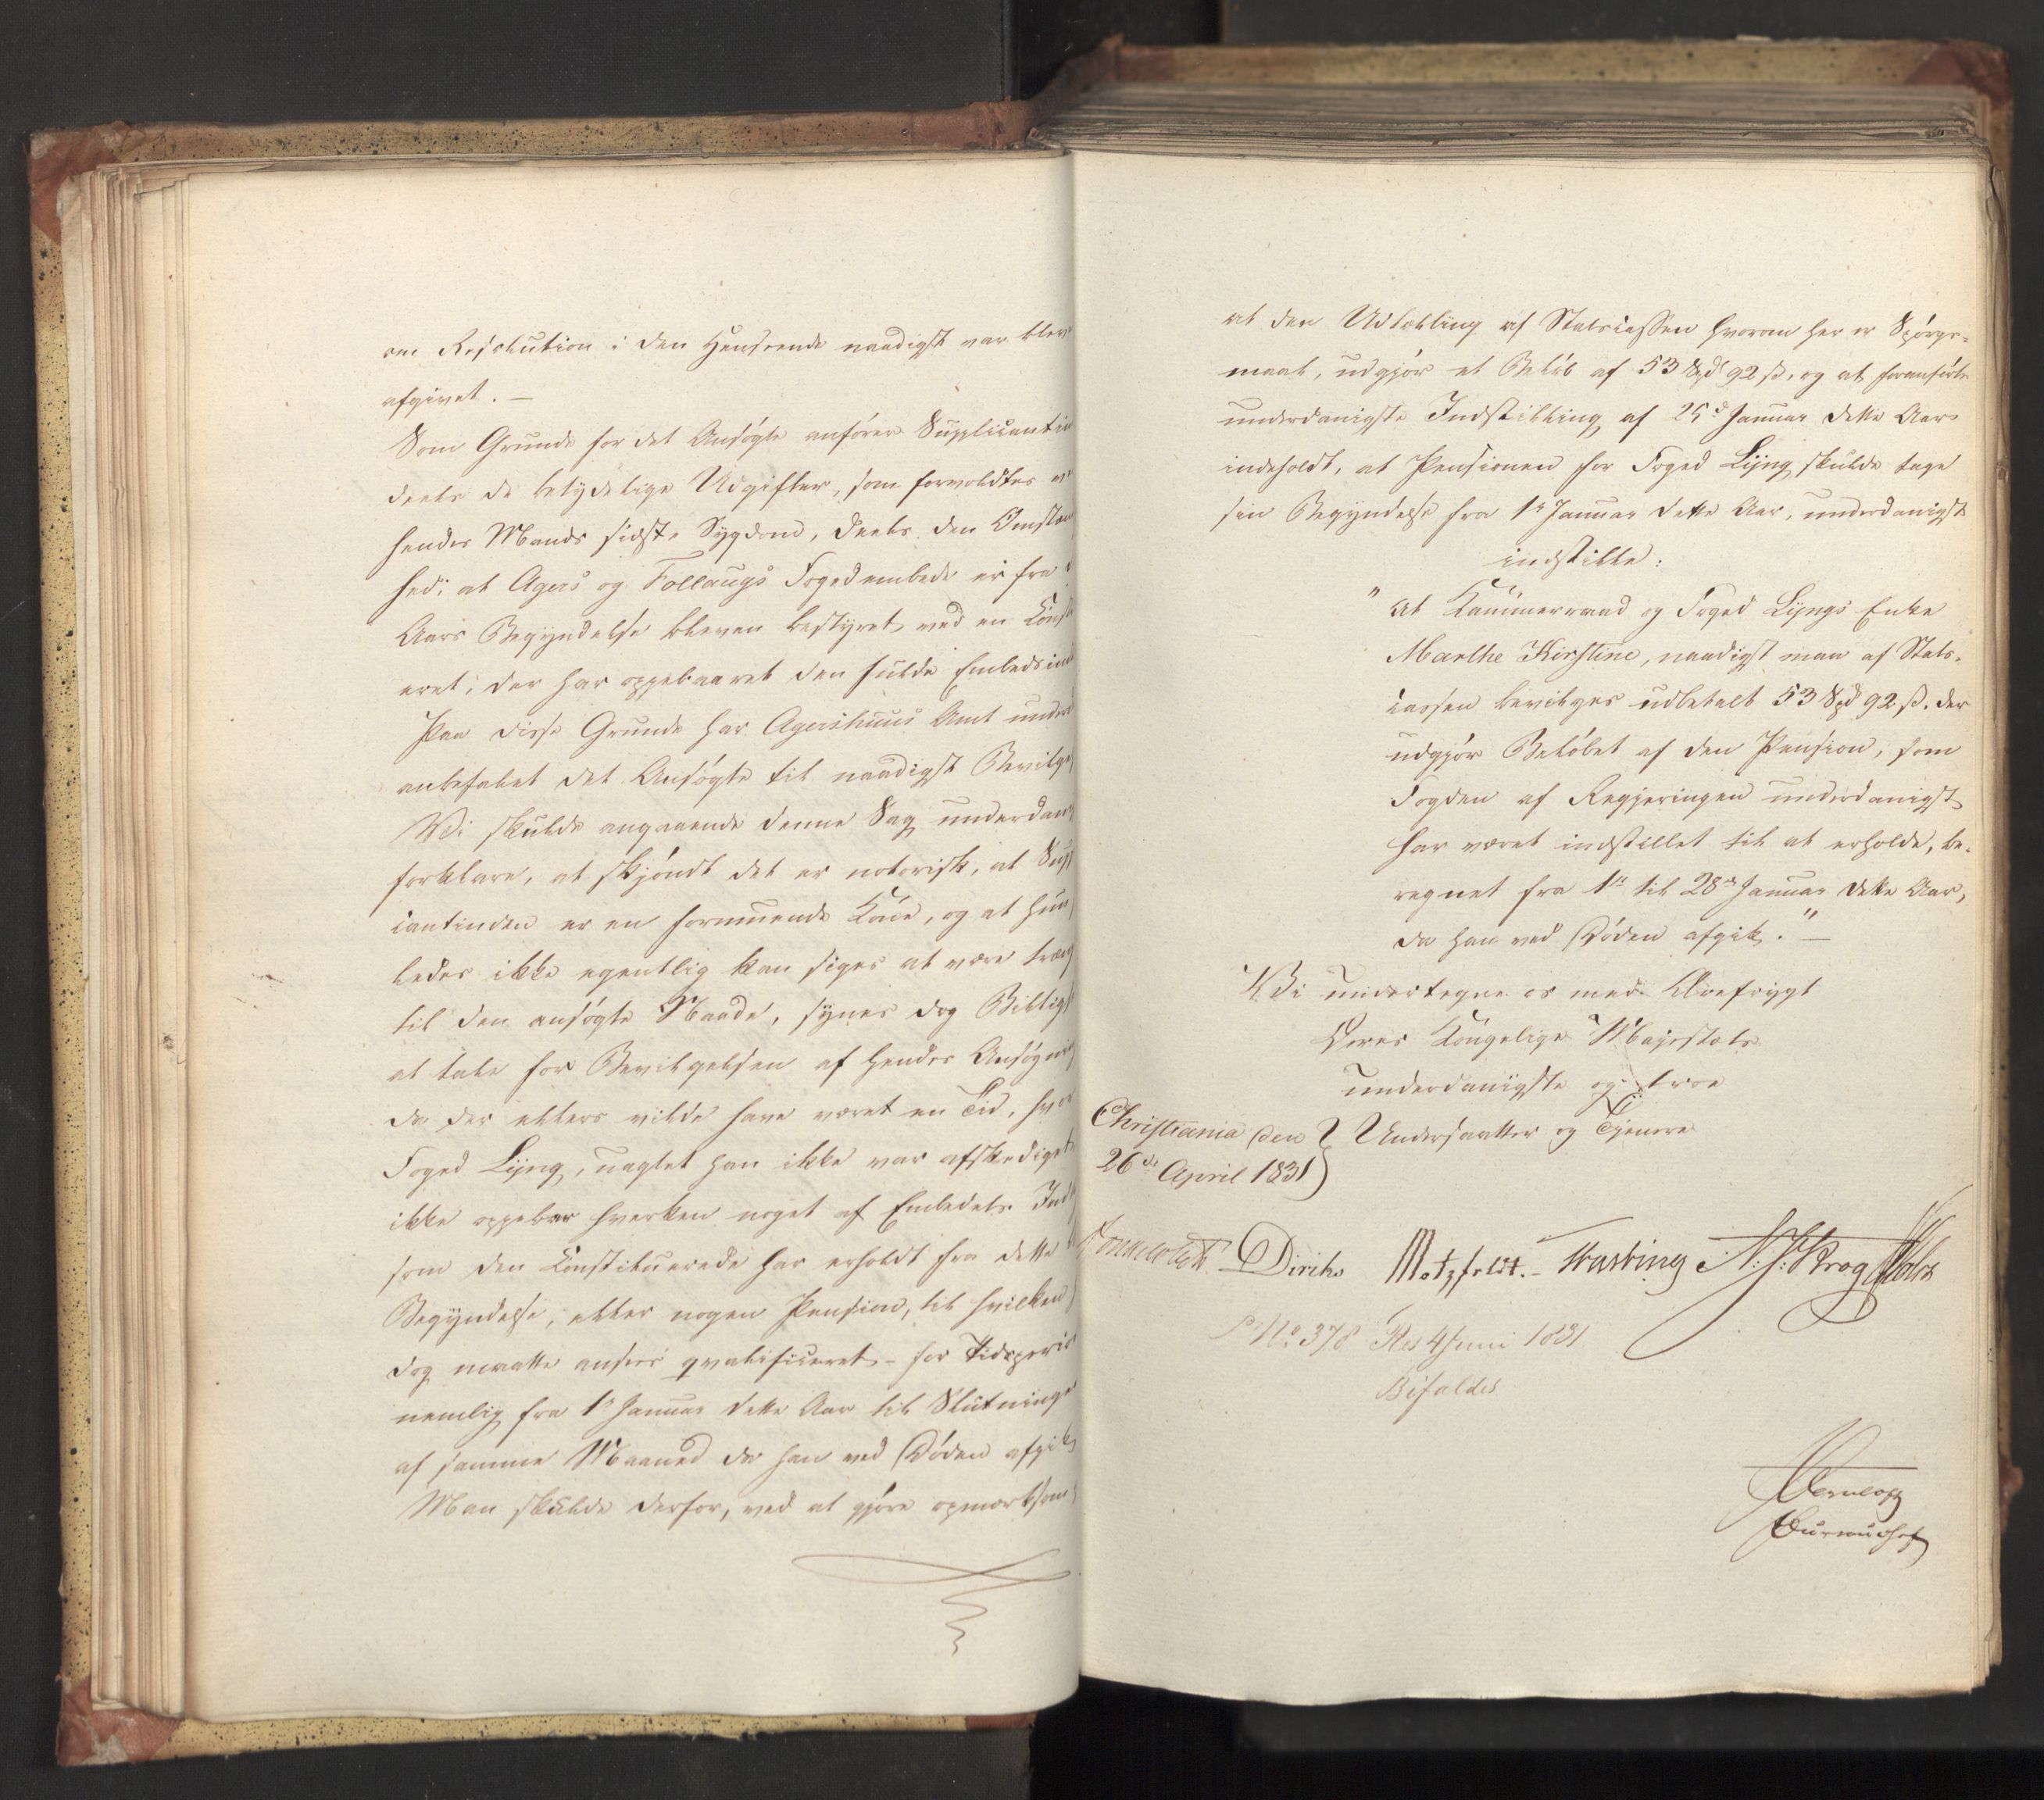 om Resolution i den Henseende naadigst var blev
afgivet. —
Som Grunde for det Ansøgte anfører Supplicantin
deels de betydelige Udgifter, som forvoldtes v
hendes Mands sidste Sygdom, deels den Omstæn
hed: at Agers og Follaugs Fogedembede er fra
Aars Begyndelse bleven bestyret ved en Const
eret, der har oppebaaret den fulde Embedsind
Paa disse Grunde har Agershuus Amt underd
anbefalet det Ansøgte til naadigst Bevilge
Vi skulde angaaende denne Sag underdan
forklare, at skjøndt det er notorisk, at Supp
cantinden er en formuende Kone, og at hun
ledes ikke egentlig kan siges at være træng
til den ansøgte Naade, synes dog Billigh
at tale for Bevilgelsen af hendes Ansøgning
da der ellers vilde have været en Tid, hvor
Foged Lÿng, uagtet han ikke var afskediget
ikke oppebar hverken noget af Embedets Ind
som den Constituerede har erholdt fra dette
Begyndelse, eller nogen Pension, til hvilken
dog maatte ansees qvalificeret – for Tidsperio
nemlig fra 1ste Januar dette Aar til Slutninge
af samme Maaned da han ved Døden afgik
Man skulde derfor, ved at gjøre opmærksom
at den Udtælling af Statscassen hvorom her er Spørgs-
maal, udgjør et Beløb af 53 Spd 92 ß, og at foranførte
underdanigste Indstilling af 25de Januar dette Aar
indeholdt, at Pensionen for Foged Lÿng skulde tage
sin Begyndelse fra 1ste Januar dette Aar, underdanigst
indstille:
"at Kammerraad og Foged Lÿngs Enke
Marthe Kirstine, naadigst maa af Stats-
cassen bevilges udbetalt 53 Spd 92 ß. der
udgjør Beløbet af den Pension, som
Fogden af Regjeringen underdanigst
har været indstillet til at erholde, be-
regnet fra 1ste til 28de Januar dette Aar,
da han ved Døden afgik." —
Vi undertegne os med Ærefrygt
Deres Kongelige Majestæts
underdanigste og troe
Christiania den } Undersaatter og Tjenere
26de April 1831)
Diriks Motzfeldt. – Fasting N. J. Krog
No 378 Res 4 Juni 1831
Bifaldes